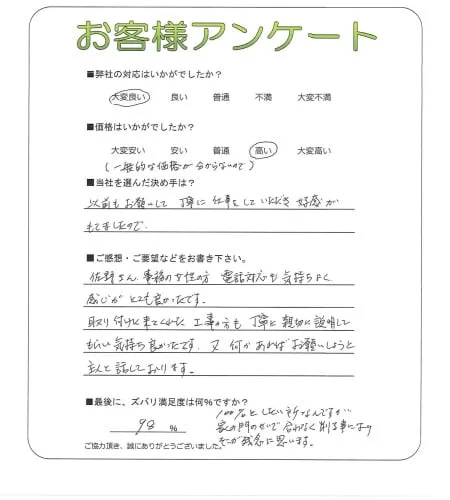 お客様アンケート
■弊社の対応はいかがでしたか？
大変良い 良い 普通 不満 大変不満
■価格はいかがでしたか？
大変安い 安い 普通 高い 大変高い
(一般的な価格が分からないので)
■当社を選んだ決め手は？
以前もお願いして 丁寧に仕事をしていただき 好感が
もてましたので.
■ご感想・ご要望などをお書き下さい。
佐野さん、事務の女性の方 電話対応も気持ちよく
感じがとても良かったです。
取り付けに来てくれた 工事の方も 丁寧に親切に説明して
もらい気持ち良かったです。又 何かあればお願いしようと
主人と話しております。
■最後に、ズバリ満足度は何％ですか？
98 ％
100％としたい所なんですが
家の門のせいで合わなく削る事になり
そこが残念に思います。
ご協力頂き、誠にありがとうございました。